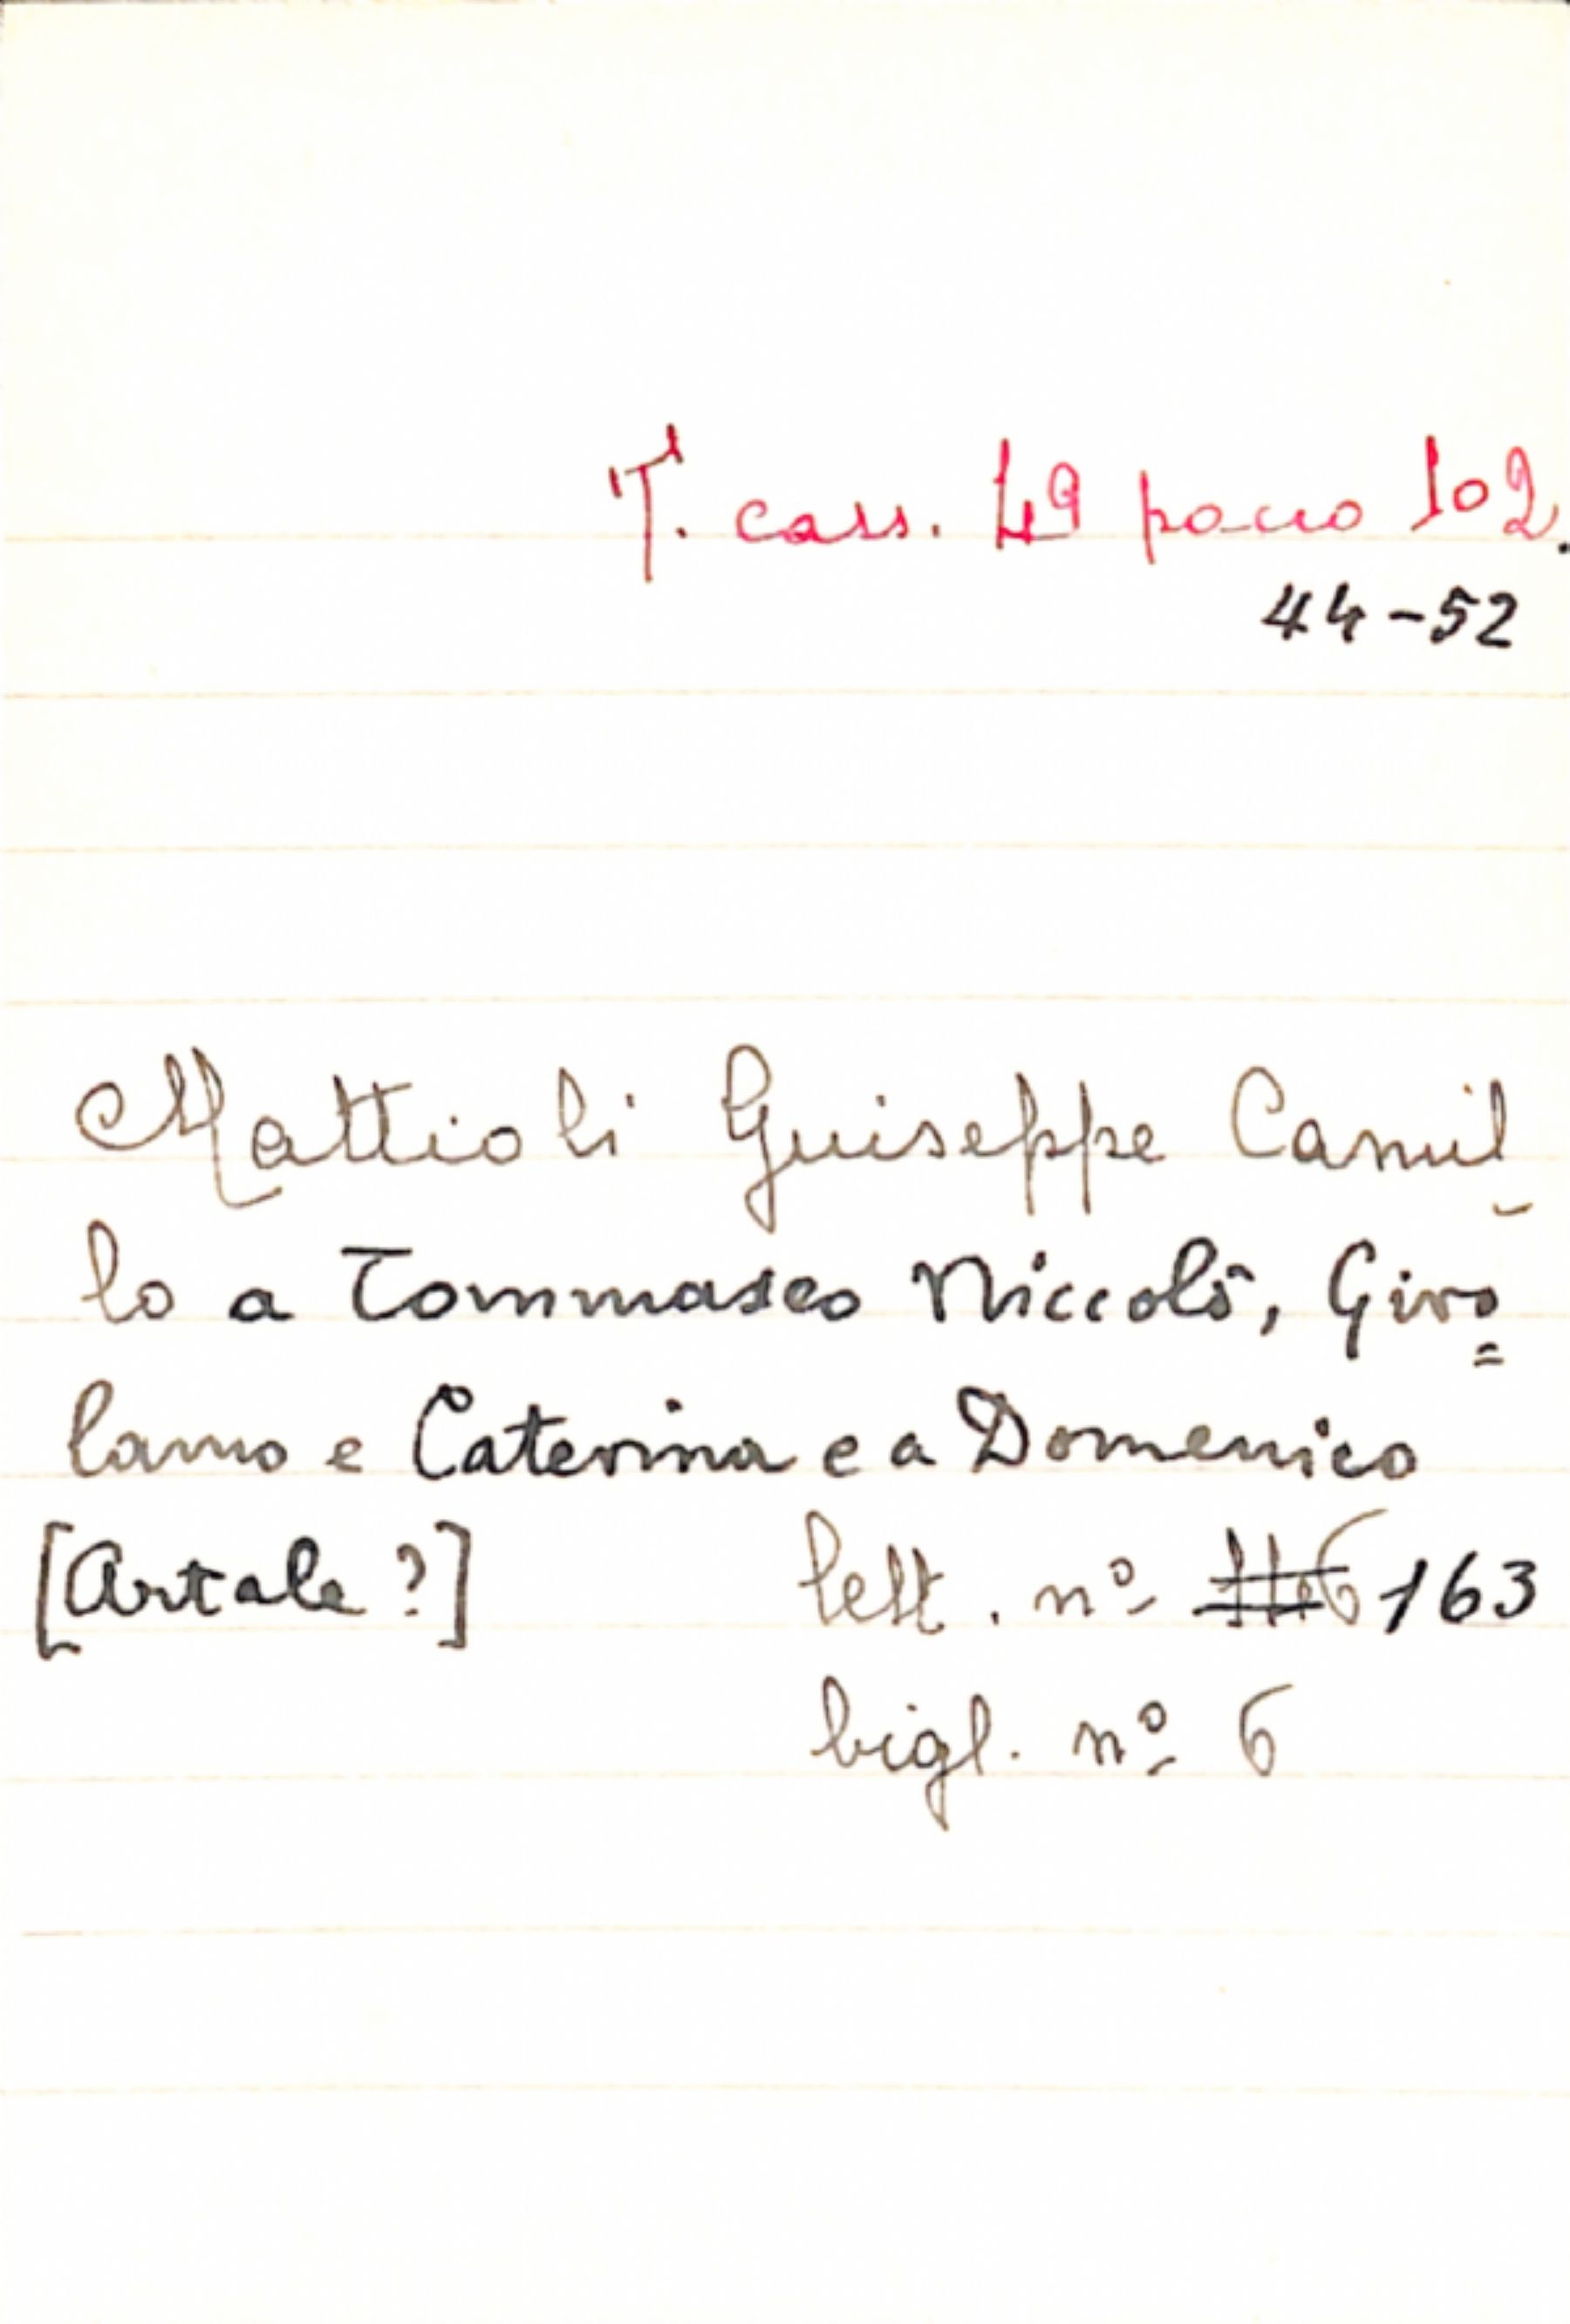 T. cass. 49 pacco 102.
44-52
Mattioli Guiseppe Camil-
lo a Tommaseo Niccolò, Giro=
lamo e Caterina e a Domenico
[Artale ?] lett. nº 163
bigl. nº 6